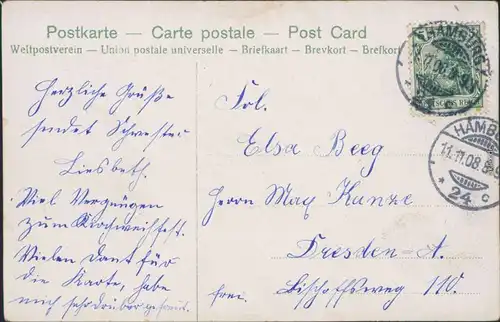 Postkarte — Carte postale — Post Card
Weltpostverein — Union postale universelle — Briefkaart — Brevkort — Brefkort
Herzliche Grüße
sendet Schwester
Liesbeth.
Viel Vergnügen
zum Kirchweihfest.
Vielen Dank für
die Karte, habe
mich sehr drüber gefreut.
Frl.
Elsa Beeg
Herrn Max Kunze
Dresden-A.
frei. Bischoffsweg 110.
HAMBURG
HAMB
11.11.08. 8-9
* 24 c